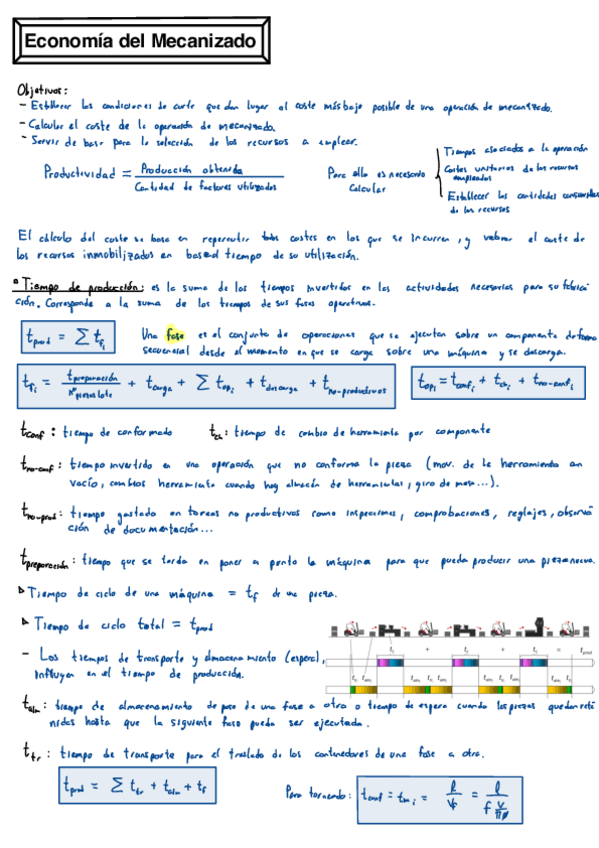 Economía del Mecanizado
Objetivos:
- Establecer las condiciones de corte que dan lugar al coste más bajo posible de una operación de mecanizado.
- Calcular el coste de la operación de mecanizado.
- Servir de base para la selección de los recursos a emplear.
Productividad = Producción obtenida / Cantidad de factores utilizados
Para ello es necesario calcular
Tiempos asociados a la operación
Costes unitarios de los recursos empleados
Establecer las cantidades consumidas de los recursos
El cálculo del coste se basa en repercutir todos costes en los que se incurren, y valorar el coste de
los recursos inmobilizados en base al tiempo de su utilización.
Tiempo de producción: es la suma de los tiempos invertidos en las actividades necesarias para su fabrica-
ción. Corresponde a la suma de los tiempos de sus fases operativas.
t prod = Σ t fi
Una fase es el conjunto de operaciones que se ejecutan sobre un componente de forma
secuencial desde el momento en que se carga sobre una máquina y se descarga.
t fi = t preparación / nº piezas lote + t carga + Σ t opi + t descarga + t no-productivos
t opi = t conf i + t ch i + t no-conf i
t conf : tiempo de conformado t ch : tiempo de cambio de herramienta por componente
t no-conf : tiempo invertido en una operación que no conforma la pieza (mov. de la herramienta en
vacío, cambios herramienta cuando hay almacén de herramientas, giro de mesa...).
t no-prod : tiempo gastado en tareas no productivas como inspecciones, comprobaciones, reglajes, observa
ción de documentación...
t preparación : tiempo que se tarda en poner a punto la máquina para que pueda producir una pieza nueva.
Tiempo de ciclo de una máquina = t f de una pieza.
Tiempo de ciclo total = t prod
- Los tiempos de transporte y almacenamiento (espera),
influyen en el tiempo de producción.
t alm : tiempo de almacenamiento de paso de una fase a otra o tiempo de espera cuando las piezas quedan rete
nidas hasta que la siguiente fase pueda ser ejecutada.
t tr : tiempo de transporte para el traslado de los contenedores de una fase a otra.
t prod = Σ t tr + t alm + t f
Para torneado: t conf = t m i = l / Vf = l / f V/πø